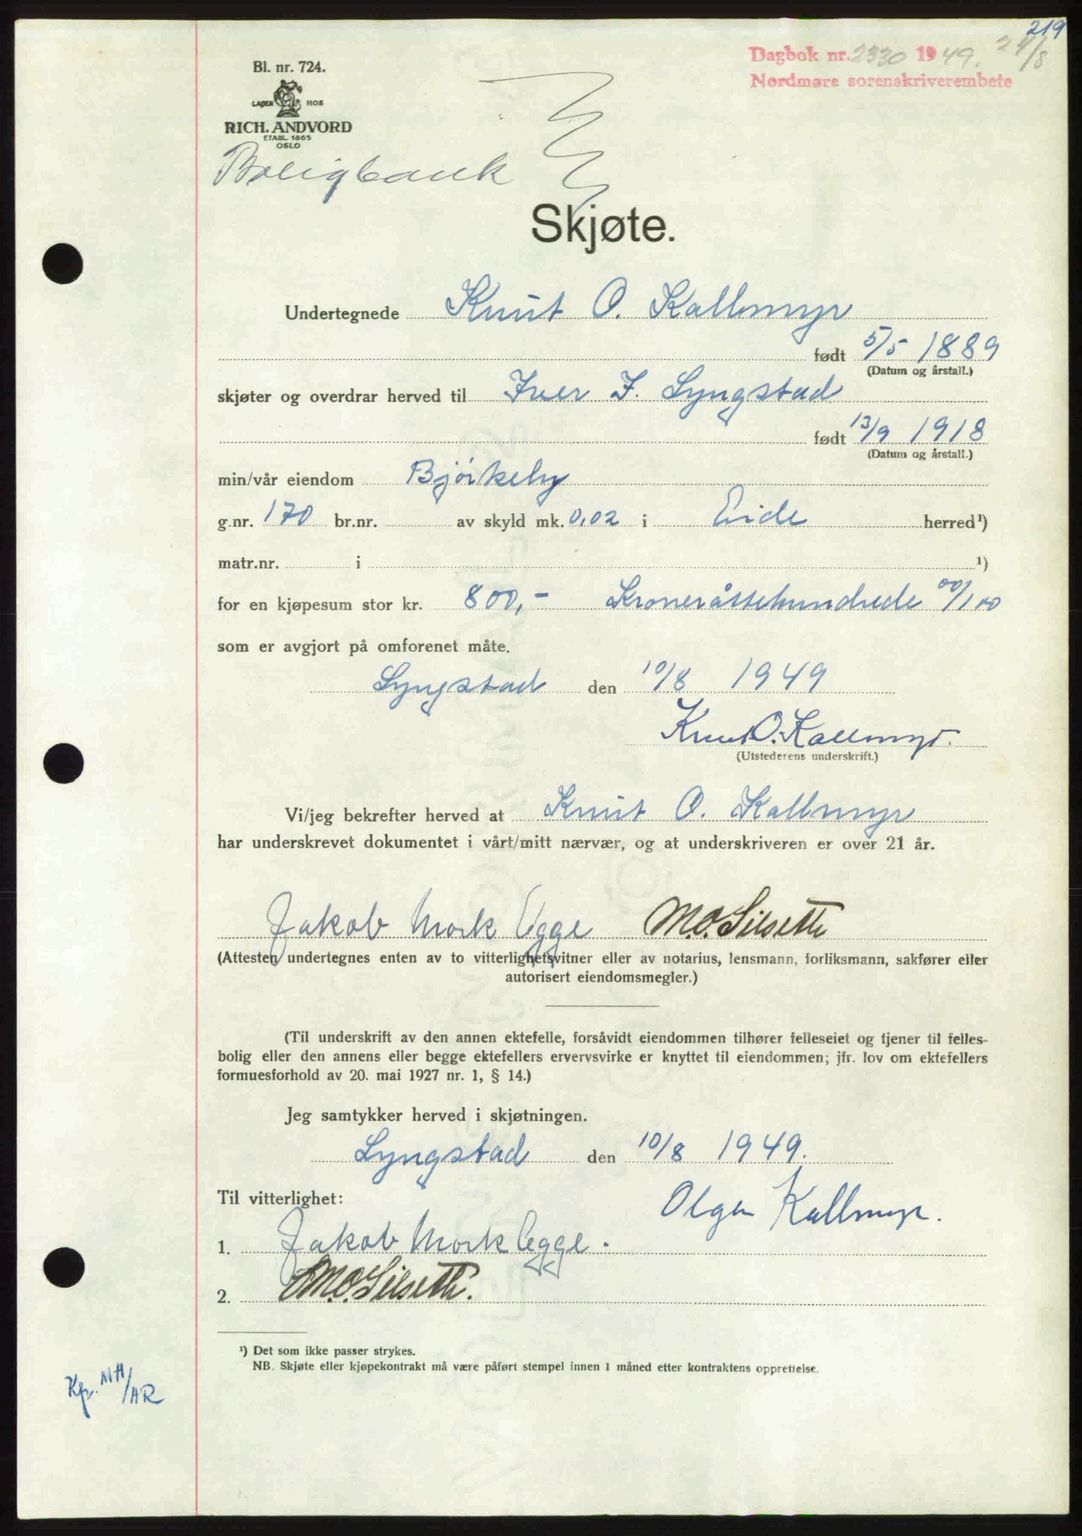 219
Dagbok nr. 2330 1949. 24/8
Nordmøre sorenskriverembete
Bl. nr. 724.
LAGER HOS
RICH. ANDVORD
ETABL. 1865
OSLO
Boligbank
Skjøte.
Undertegnede Knut O. Kallmyr
født 5/5 1889
(Datum og årstall.)
skjøter og overdrar herved til Iver I. Lyngstad
født 13/9 1918
(Datum og årstall.)
min/vår eiendom Bjørkeby
g.nr. 170 br.nr. av skyld mk. 0,02 i Eide herred¹)
matr.nr. i ¹)
for en kjøpesum stor kr. 800,- Kroneråttehundrede 00/100
som er avgjort på omforenet måte.
Lyngstad den 10/8 1949
Knut O. Kallmyr.
(Utstederens underskrift.)
Vi/jeg bekrefter herved at Knut O. Kallmyr
har underskrevet dokumentet i vårt/mitt nærvær, og at underskriveren er over 21 år.
Jakob Mork Ugge M.O. Silseth
(Attesten undertegnes enten av to vitterlighetsvitner eller av notarius, lensmann, forliksmann, sakfører eller
autorisert eiendomsmegler.)
(Til underskrift av den annen ektefelle, forsåvidt eiendommen tilhører felleseiet og tjener til felles-
bolig eller den annens eller begge ektefellers ervervsvirke er knyttet til eiendommen; jfr. lov om ektefellers
formuesforhold av 20. mai 1927 nr. 1, § 14.)
Jeg samtykker herved i skjøtningen.
Lyngstad den 10/8 1949.
Til vitterlighet: Olga Kallmyr.
1. Jakob Mork Ugge.
2. M.O. Silseth.
¹) Det som ikke passer strykes.
NB. Skjøte eller kjøpekontrakt må være påført stempel innen 1 måned etter kontraktens opprettelse.
Kp. MH/AR